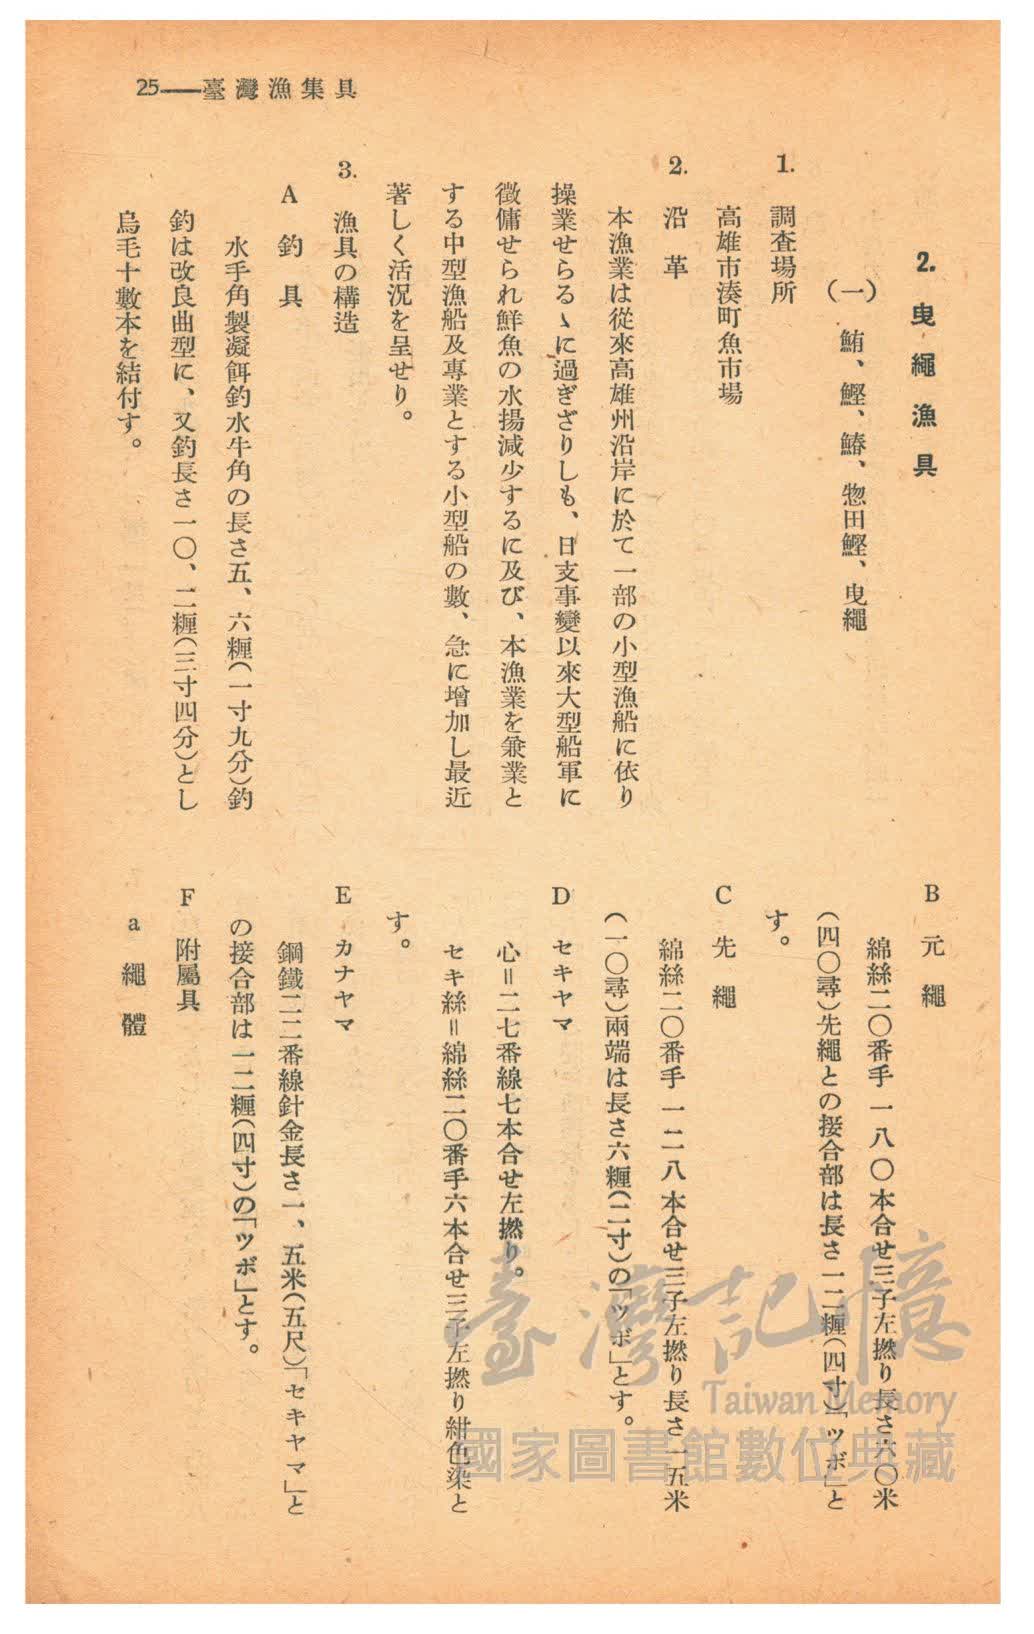 25——臺灣漁集具
2. 曳繩漁具
(一) 鮪、鰹、鰆、惣田鰹、曳繩
1. 調査場所
高雄市湊町魚市場
2. 沿革
本漁業は從來高雄州沿岸に於て一部の小型漁船に依り
操業せらるゝに過ぎざりしも、日支事變以來大型船軍に
徵傭せられ鮮魚の水揚減少するに及び、本漁業を兼業と
する中型漁船及專業とする小型船の數、急に增加し最近
著しく活況を呈せり。
3. 漁具の構造
A 釣具
水手角製凝餌釣水牛角の長さ五、六糎(一寸九分)釣
釣は改良曲型に、又釣長さ一〇、二糎(三寸四分)とし
烏毛十數本を結付す。
B 元繩
綿絲二〇番手一八〇本合せ三子左撚り長さ六〇米
(四〇尋)先繩との接合部は長さ一二糎(四寸)「ツボ」と
す。
C 先繩
綿絲二〇番手一二八本合せ三子左撚り長さ一五米
(一〇尋)兩端は長さ六糎(二寸)の「ツボ」とす。
D セキヤマ
心＝二七番線七本合せ左撚り。
セキ絲＝綿絲二〇番手六本合せ三子左撚り紺色染と
す。
E カナヤマ
鋼鐵二二番線針金長さ一、五米(五尺)「セキヤマ」と
の接合部は一二糎(四寸)の「ツボ」とす。
F 附屬具
a 繩體
臺灣記憶
Taiwan Memory
國家圖書館數位典藏